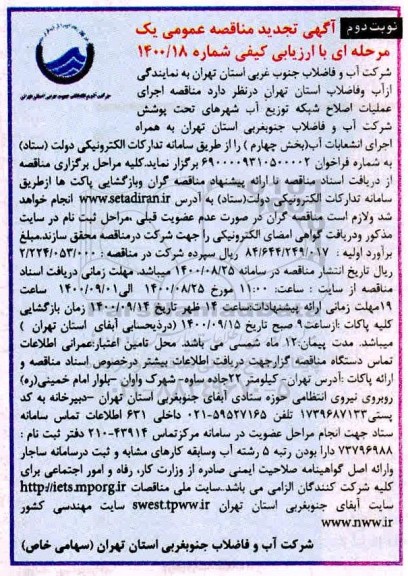 نوبت دوم
آگهی تجدید مناقصه عمومی یک
مرحله ای با ارزیابی کیفی شماره ۱۴۰۰/۱۸
شرکت آب و فاضلاب جنوب غربی استان تهران
شرکت آب و فاضلاب جنوب غربی استان تهران به نمایندگی
ازآب وفاضلاب استان تهران درنظر دارد مناقصه اجرای
عملیات اصلاح شبکه توزیع آب شهرهای تحت پوشش
شرکت آب و فاضلاب جنوبغربی استان تهران به همراه
اجرای انشعابات آب(بخش چهارم ) را از طریق سامانه تدارکات الکترونیکی دولت (ستاد)
به شماره فراخوان ۶۹۰۰۰۰۹۳۱۰۵۰۰۰۰۲ برگزار نماید.کلیه مراحل برگزاری مناقصه
از دریافت اسناد مناقصه تا ارائه پیشنهاد مناقصه گران وبازگشایی پاکت ها ازطریق
سامانه تدارکات الکترونیکی دولت(ستاد) به آدرس www.setadiran.ir انجام خواهد
شد ولازم است مناقصه گران در صورت عدم عضویت قبلی ،مراحل ثبت نام در سایت
مذکور ودریافت گواهی امضای الکترونیکی را جهت شرکت درمناقصه محقق سازند.مبلغ
برآورد اولیه : ۸۴/۶۴۴/۲۴۹/۰۱۷ ریال سپرده شرکت در مناقصه : ۲/۲۲۴/۰۵۳/۰۰۰
ریال تاریخ انتشار مناقصه در سامانه ۱۴۰۰/۰۸/۲۵ میباشد. مهلت زمانی دریافت اسناد
مناقصه از سایت : ساعت: ۱۱:۰۰ مورخ ۱۴۰۰/۰۸/۲۵ الی۱۴۰۰/۰۹/۰۱ ساعت
۱۹مهلت زمانی ارائه پیشنهادات:ساعت ۱۴ ظهر تاریخ ۱۴۰۰/۰۹/۱۴ زمان بازگشایی
کلیه پاکات :ازساعت۹ صبح تاریخ ۱۴۰۰/۰۹/۱۵ (درذیحسابی آبفای استان تهران )
میباشد. مدت پیمان:۱۲ ماه شمسی می باشد. محل تامین اعتبار:عمرانی اطلاعات
تماس دستگاه مناقصه گزارجهت دریافت اطلاعات بیشتر درخصوص اسناد مناقصه و
ارائه پاکات :آدرس تهران- کیلومتر ۲۲جاده ساوه-شهرک واوان -بلوار امام خمینی(ره)
روبروی نیروی انتظامی حوزه ستادی آبفای جنوبغربی استان تهران -دبیرخانه به کد
پستی۱۷۳۹۶۸۷۱۳۳ تلفن ۵۹۵۲۷۱۶۵-۰۲۱ داخلی ۶۳۱ اطلاعات تماس سامانه
ستاد جهت انجام مراحل عضویت در سامانه مرکزتماس ۴۳۹۱۴-۲۱۰ دفتر ثبت نام :
۷۳۷۹۶۹۸۸ دارا بودن رتبه ۵ رشته آب وسابقه کارهای مشابه و ثبت درسامانه ساجار
وارائه اصل گواهینامه صلاحیت ایمنی صادره از وزارت کار، رفاه و امور اجتماعی برای
کلیه شرکت کنندگان الزامی می باشد..سایت ملی مناقصات http://iets.mporg.ir
سایت آبفای جنوبغربی استان تهران swest.tpww.ir سایت مهندسی کشور
www.nww.ir
شرکت آب و فاضلاب جنوبغربی استان تهران (سهامی خاص)